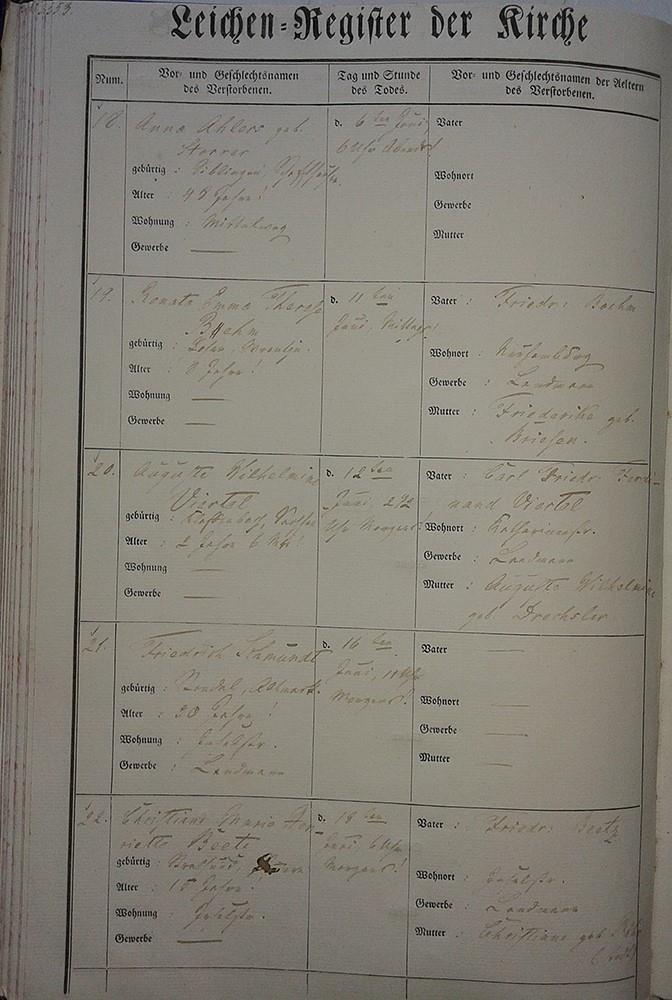 Leichen-Register der Kirche
Num.
Vor- und Geschlechtsnamen
des Verstorbenen.
Tag und Stunde
des Todes.
Vor- und Geschlechtsnamen der Aeltern
des Verstorbenen.
18.
Anna Ahlers geb.
Storrer
gebürtig : Siblingen, Schaffhausen.
Alter : Jahre!
Wohnung : Mittelweg
Gewerbe
d. 6 ten Juni
6 Uhr Abends
Vater
Wohnort
Gewerbe
Mutter
19.
Renate Emma Therese
Boehm
gebürtig :
Alter : Jahre!
Wohnung
Gewerbe
d. 11 ten
Juni, Mittags!
Vater : Friedr: Boehm
Wohnort :
Gewerbe : Landmann
Mutter : Friederike geb.
Briesen.
20.
Auguste Wilhelmine
Viertel
gebürtig : Sachsen
Alter : 2 Jahre 6 Mt!
Wohnung
Gewerbe
d. 12 ten
Juni, 2 1/2
Uhr Morgens!
Vater : Carl Friedr: Ferdi-
nand Viertel
Wohnort : Katharinenstr.
Gewerbe : Landmann
Mutter : Auguste Wilhelmine
geb. Drechsler
21.
Friedrich Schmundt
gebürtig : Stendal, Altmark.
Alter : Jahre!
Wohnung : Inselstr.
Gewerbe : Landmann
d. 16 ten
Juni, 11 Uhr
Morgens!
Vater
Wohnort
Gewerbe
Mutter
22.
Christiane Marie Hen-
riette Beetz
gebürtig :
Alter : Jahre!
Wohnung : Inselstr.
Gewerbe
d. 18 ten
Juni 6 Uhr
Morgens!
Vater : Friedr: Beetz
Wohnort : Inselstr.
Gewerbe : Landmann
Mutter : Christiane geb.